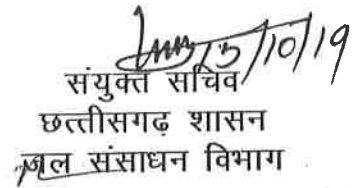 15/10/19
संयुक्त सचिव
छत्तीसगढ़ शासन
जल संसाधन विभाग